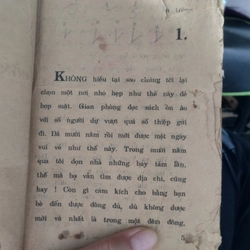 1.
KHÔNG hiểu tại sao chúng tôi lại
chọn một nơi nhỏ hẹp như thế này để
họp mặt. Gian phòng đọc sách ồn ào
với số người dự vượt quá số thiệp gửi
đi. Đã mười năm rồi mới được một ngày
vui vẻ như thế này. Trong mười năm
qua tôi dọn nhà những bảy tám lần,
thế mà họ vẫn tìm được địa chỉ, cũng
hay ! Còn gì cảm kích cho bằng bạn
bè đến được đông đủ, dù không được
mời và nhất là trong một đêm đông,
5